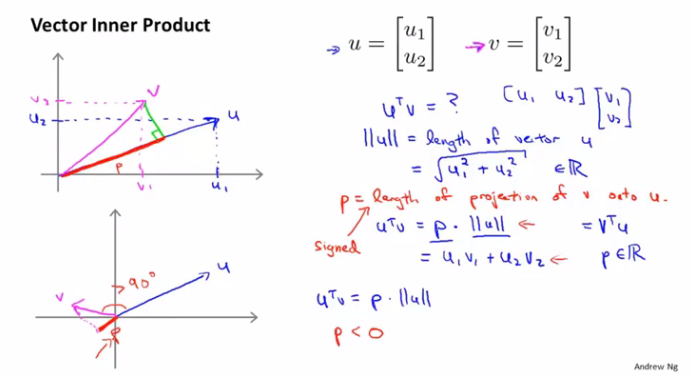 Vector Inner Product
→ u = [u₁ u₂] → v = [v₁ v₂]
uᵀv = ? [u₁ u₂] [v₁ v₂]
||u|| = length of vector u
= √(u₁² + u₂²) ∈ ℝ
p = length of projection of v onto u.
signed
uᵀv = p · ||u|| ← = vᵀu
= u₁v₁ + u₂v₂ ← p ∈ ℝ
uᵀv = p · ||u||
p < 0
v
v₂
u₂
u
p
v₁
u₁
90°
u
v
p
Andrew Ng